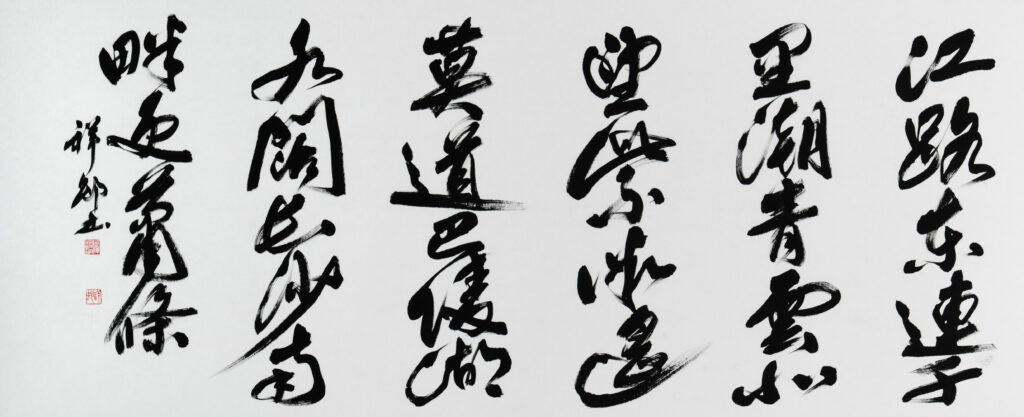 江路東連千
里潮青雲北
望紫微遙
莫道巴陵湖
水闊長沙南
畔更蕭條
祥 书